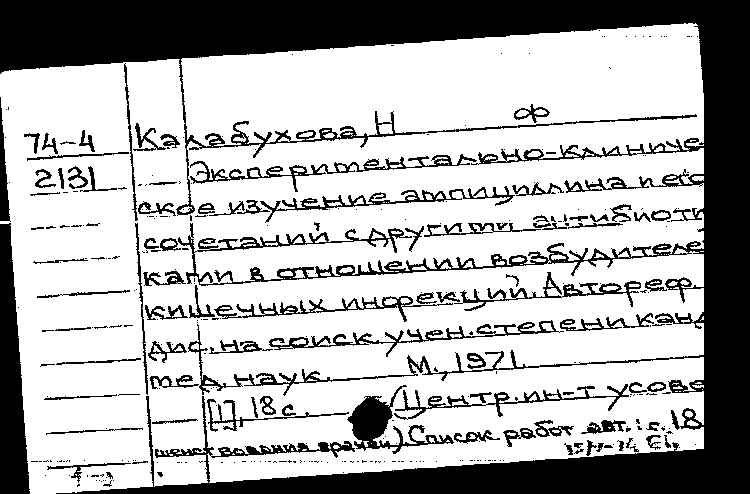 74-4 Калабухова, Н ф
2131 Экспериментально-клиниче
ское изучение ампициллина и его
сочетаний с другими антибиоти
ками в отношении возбудителе
кишечных инфекций. Автореф.
дис. на соиск. учен. степени канд
мед. наук. М., 1971.
[1], 18 с. (Центр. ин-т усове
шенствования врачей) Список работ авт.: с. 18